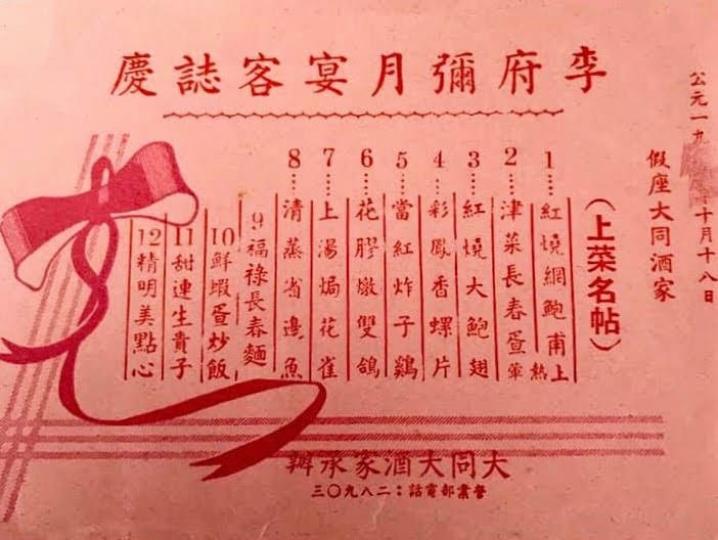 公元一九 十月十八日
假座大同酒家
李府彌月宴客誌慶
（上菜名帖）
1……紅燒網鮑甫
2……津菜長春蛋
上熱葷
3……紅燒大鮑翅
4……彩鳳香螺片
5……當紅炸子鷄
6……花膠燉雙鴿
7……上湯焗花雀
8……清蒸省邊魚
9福祿長春麵
10鮮蝦蛋炒飯
11甜連生貴子
12精明美點心
大同大酒家承辦
營業部電話：二八九〇三